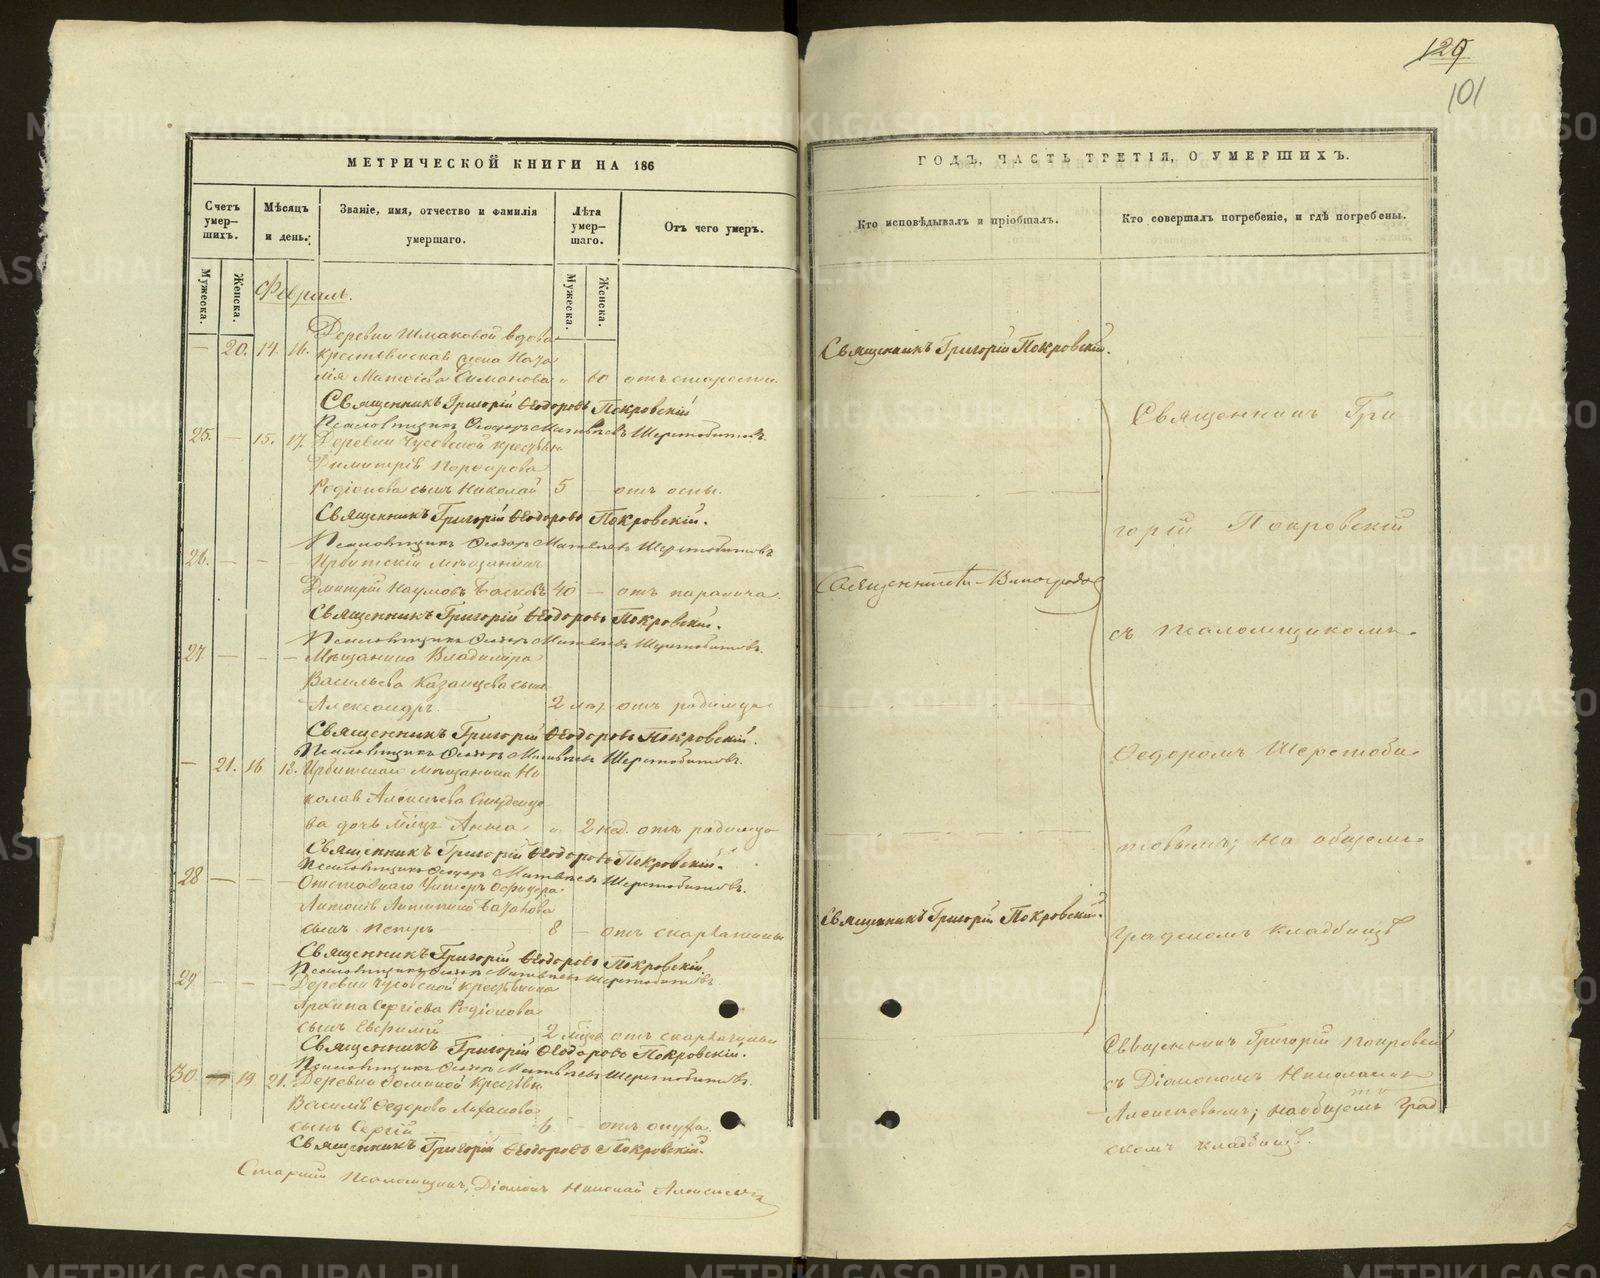 129
101
МЕТРИЧЕСКОЙ КНИГИ НА 186
ГОДЪ, ЧАСТЬ ТРЕТІЯ, О УМЕРШИХЪ.
Счетъ умер—шихъ.
Мѣсяцъ и день.
Званіе, имя, отчество и фамилія умершаго.
Лѣта умер—шаго.
Отъ чего умеръ.
Кто исповѣдывалъ и пріобщалъ.
Кто совершалъ погребеніе, и гдѣ погребены.
Мужеска.
Женска.
Мужеска.
Женска.
Февраль.
Деревни Шмаковой вдова
— 20. 14. 16. крестьянская жена
Матѳіева Симанова „ 60 отъ старости.
Священникъ Григорій Ѳеодоровъ Покровскій
Псаломщикъ Ѳеодоръ Матвѣевъ Шерстобитовъ.
25. — 15. 17. Деревни Чусовской крестьян
Димитрія
Родіонова сынъ Николай 5 — отъ оспы.
Священникъ Григорій Ѳеодоровъ Покровскій.
Псаломщикъ Ѳеодоръ Матвѣевъ Шерстобитовъ
26. — — — Ирбитскій мѣщанинъ
Дмитрій Наумовъ 40 — отъ паралича.
Священникъ Григорій Ѳеодоровъ Покровскій.
Псаломщикъ Ѳеодоръ Матвѣевъ Шерстобитовъ.
27 — — — Мѣщанина Владиміра
Васильева Казанцева сынъ
Александръ. 2 отъ родимца
Священникъ Григорій Ѳеодоровъ Покровскій.
Псаломщикъ Ѳеодоръ Матвѣевъ Шерстобитовъ.
— 21. 16 18. Ирбитскаго мѣщанина Ни
колая Алексѣева
ва дочь Анна „ 2 нед. отъ родимца
Священникъ Григорій Ѳеодоровъ Покровскій.
Псаломщикъ Ѳеодоръ Матвѣевъ Шерстобитовъ.
28 — — — Отставнаго Унтеръ Офицера
сынъ Петръ 8 — отъ скарлатины
Священникъ Григорій Ѳеодоровъ Покровскій.
Псаломщикъ Ѳеодоръ Матвѣевъ Шерстобитовъ.
29. — — — Деревни Чусовской крестьянина
Архипа Сергіева Родіонова
сынъ Евфимій 2 отъ скарлатины
Священникъ Григорій Ѳеодоровъ Покровскій.
Псаломщикъ Ѳеодоръ Матвѣевъ Шерстобитовъ.
30. — 19 21. Деревни
Василія Ѳедорова
сынъ Сергій 6 — отъ
Священникъ Григорій Ѳеодоровъ Покровскій.
Старшій Псаломщикъ, Діаконъ Николай
Священникъ Григорій Покровскій.
Священникъ Виноградов
Священникъ Григорій Покровскій.
Священникъ Гри
горій Покровскій
съ псаломщикомъ
Ѳедоромъ Шерстоби
товымъ; на общемъ
градскомъ кладбищѣ
Священникъ Григорій Покровскій
съ Діакономъ Николаемъ
Алексѣевымъ; на общемъ град
скомъ кладбищѣ.